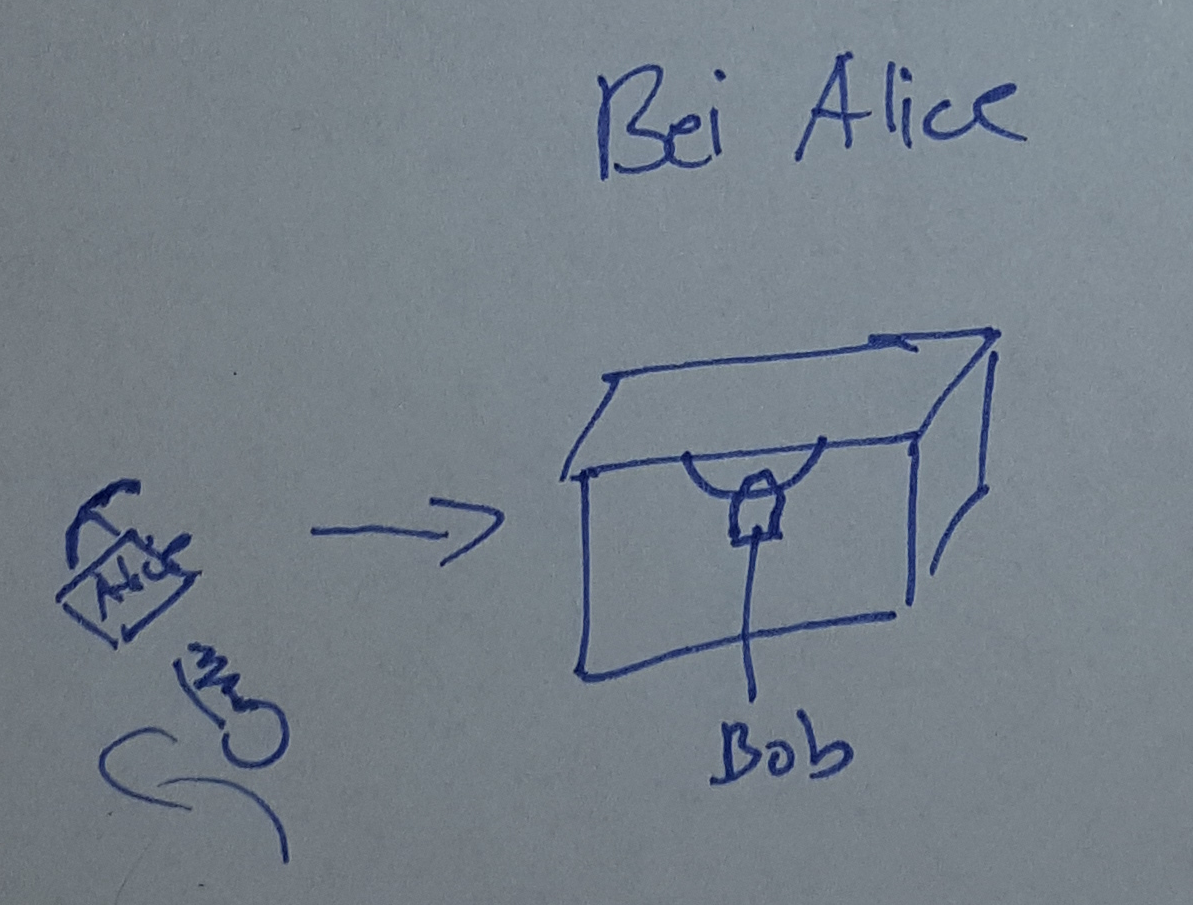 Bei Alice
Alice
Bob